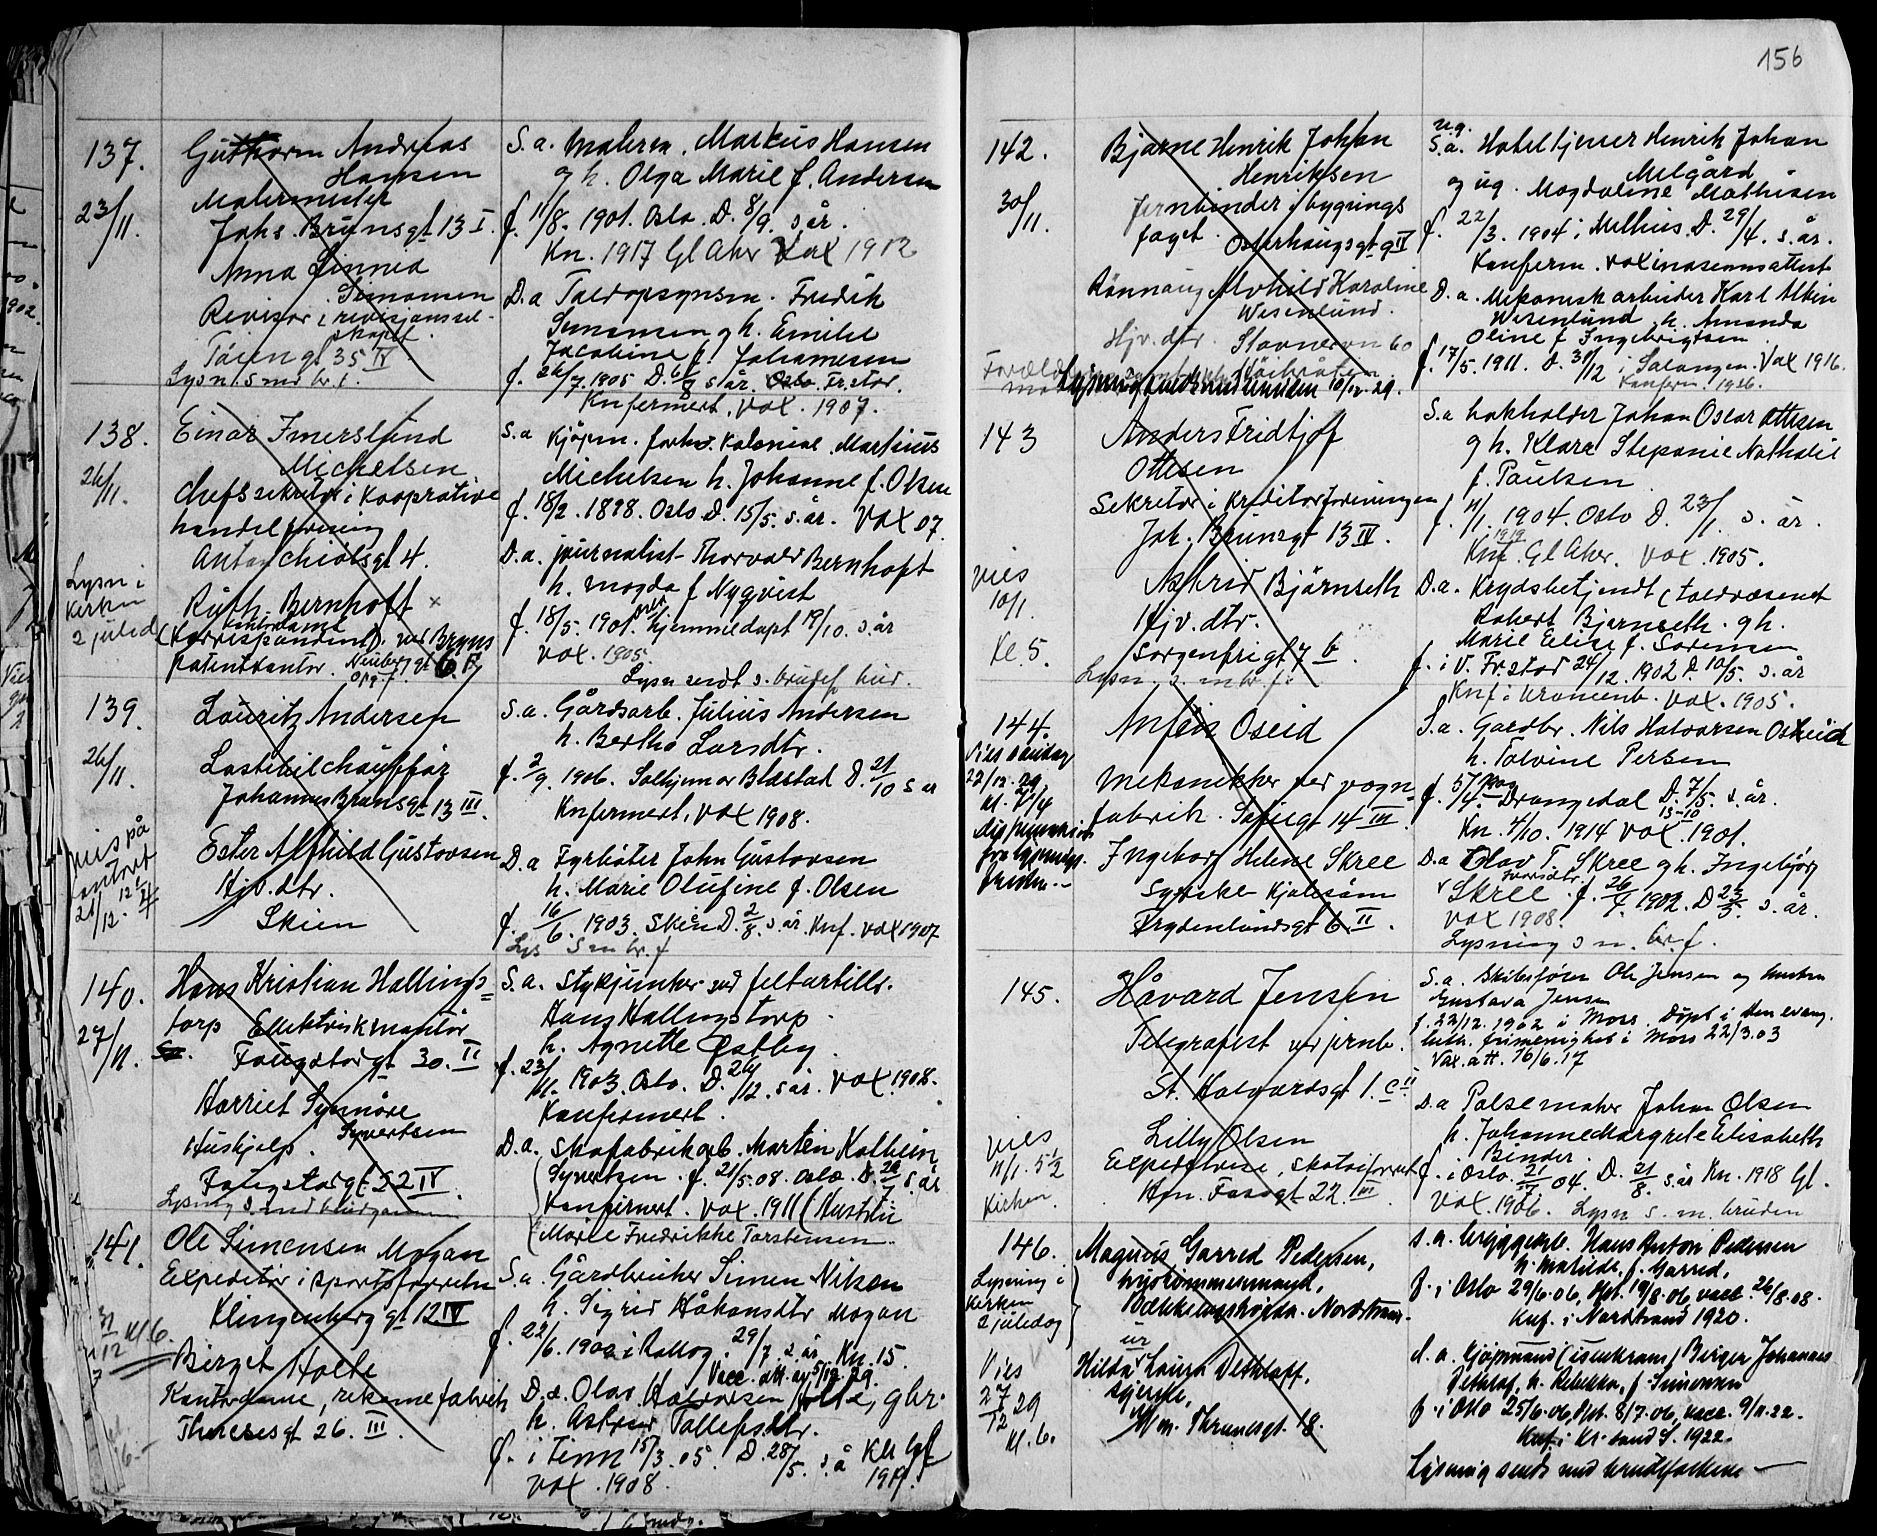 156
137.
23/11.
Guthorm Andreas
Hansen
Malermester
Johs. Brunsgt 13 I.
Anna Linnea
Simonsen
Revisor i revisjonssel-
skapet.
Tøiengt 35 IV
Lysn. s. med br. f.
S. a. Maleren. Markus Hansen
og h. Olga Marie f. Andersen
f. 11/8. 1901. Oslo. D. 8/9. s. år.
Kn. 1917 Gl Aker Vax 1912
D. a Toldopsynsm. Fredik
Simonsen g h. Emilie
Jacobine f. Johannesen
f. 26/7. 1905 D. 6/8 s år. Oslo. Fr. stor.
Knfermert, vax. 1907.
138.
26/11.
Lysn i
Kirken
2 juled
Einar Imerslund
Michelsen
Chefssekretær i Kooprative
handelforening
Anton Chiotsgt 4.
Ruth Bernhoft
(Korrespondent) ved Bryns
patentkontor. Nuuberggt 6. IV
opg f
S. a Kjøpm. forh. Kolonial. Martinius
Michelsen h. Johanne f. Olsen
f. 18/2. 1898. Oslo D. 15/5. s. år. Vax 07.
D. a. journalist Thorvald Bernhoft
h. Magda f Nyqvist
f. 18/5. 1901. hjemmedøpt 19/10. s. år
vax. 1905.
Lysn sendt s. brudef. hid.
139.
26/11.
vies på
kontoret
21/12. 12 1/4
Lauritz Andersen
Lastebilchauffør
Johannes Brunsgt 13 III.
Ester Alfhild Gustavsen
Hjv. dtr.
Skien
S. a. Gårdsarb. Julius Andersen
h. Bertha Larsdtr.
f. 2/9. 1906. Solhjem or Blæstad D. 21/10 s år
Knfermert, vax 1908.
D. a Fyrbøter John Gustavsen
h. Marie Olufine f. Olsen
f. 16/6. 1903. Skien D. 2/8. s. år. Knf. vax 1907
Lys s m br. f
140.
27/11.
Hans Kristian Hallings=
torp Elektriskmontør
Fougstadgt 30. II
Harriet Synnøve
Syvertsen
Hushjelp.
Fougstadgt 22 IV.
Lysning s. med brudgommen
S. a. Stykjunker ved feltartilli.
Hans Hallingstorp.
h. Agnethe Østby.
f. 23/11. 1903. Oslo. D. 26/12. s år. vax. 1908.
Konfermert.
D. a. Skofabrikarb. Martin Kolbein
Syvertsen. f. 21/5. 08. Oslo. D. 26/7 s. år
Konfirmert. Vax. 1911 (Hustru
Marie Fredrikke Torstensen.
141.
31/12 kl 6.
Ole Simensen Mogan
Expeditør i sportsforretn
Klingenberg gt 12 IV
Birget Holte
Kontordame, rekamefabrik
Theresesgt 26. III.
S. a. Gårdbruker Simen Nilsen
h. Sigrid Håkonsdtr Mogan
f. 22/6. 1900 i Rollag. 29/7. s. år. Kn. 15.
Vacc. att. av 5/12 29.
D. a. Olav Halvorsen Holte, gbr.
h. Astrid Tollefsdtr.
f. i Tinn 15/3. 05. D. 28/5. s. å Kn
Vax. 1908. 1919.
142.
30/11.
Bjarne Henrik Johan
Henriksen
Jernbinder i bygnings
faget. Osterhausgt 9 IV
Rønnaug Alvhild Karoline
Wesenlund.
Hjv. dtr. Stavnervn 60
Lysningsedd s. m bruden 10/12. 29.
u. g.
S. a. Hotel tjener Henrik Johan
Melgård
og ug. Magdaline Mathisen
f. 22/3. 1904 i Melhus. D. 29/4. s. år.
Konferm. Vaxinasonsattest
D. a. Mekanisk arbeider Karl Albin
Wesenlund h. Amanda
Oline f. Ingebrigtsen
f. 17/5. 1911. D. 31/12 i Salangen. Vax 1916.
Konferm. 1926.
143
vies
10/1.
Kl 5.
Anders Fridtjof
Ottesen
Sekretær i Kreditorforeningen
Joh. Brunsgt 13 IV.
Astrid Bjørnseth
Hjv. dtr.
Sorgenfrigt 7 b.
Lysn. s. m br f.
S. a Lokholder Johan Oscar Ottesen
g h. Klara Stepanie Nathalie
f. Paulsen
f. 11/1. 1904. Oslo D. 23/1. s. år.
1919
Knf. Gl Aker. vax. 1905.
D. a. Krydsbetjendt (Toldvæsenet
Robert Bjørnseth. g h.
Marie Elise f. Sørensen
f. i V. Fr. stad 24/12. 1902 D. 10/5. s. år
Knf. i Uranienb. Vax. 1905.
144.
Vies søndag
22/12. 29
Kl. 7 1/4
dispensasjon
fra lysnings-
fristen.-
Anfein Oseid
Mekanikker ved vogn=
fabrik. Sofiegt 14 III.
Ingeborg Helene Skree
Syerske Kjolesøm
Frydenlundsgt 6 II.
S. a. Gardbr. Nils Halvorsen Oseid
h. Tolvine Persen
f. 5/4. Drangedal D. 7/5. s. år.
Kn. 4/10. 1914 vax. 1901.
D. a Olav T. Skree g h. Ingebjørg
Skree. f. 26/7. 1902. D 23/3. s. år.
vax 1908.
Lysning s m. br. f.
145.
vies
11/1. 5 1/2
Kirken
Håvard Jensen
Telegrafist ved jernb.
St. Halvardsgt 1. c II
Lilly Olsen
Expeditrise, skotøiforret.
Hm. Fossgt 22 III
S. a. Skibsfører Ole Jensen og hustru
Gustava Jensen
f. 22/12. 1902 i Moss. Døpt i den evang.
luth. frimenighet i Moss 22/3. 03
Vax. att. 16/6. 17
D. a Pølsemaker Johan Olsen
h. Johanne Margrete Elisabeth
Binder.
f. i Oslo. 21/7 04. D. 21/8. s år Kn. 1918 Gl.
Vax. 1906. Lysn s. m. bruden
146.
Lysning i
Kirken
2 juledag
Vies
27/12 29
kl. 6.
Magnus Garred Pedersen,
bryggkommersmand,
Bækkelagshøgda. Nordstrand.
Hilda Laura Dethloff,
syerske,
M m. Thranesgt. 18.
s. a. bryggearb. Hans Anton Pedersen
h. Matilde, f. Garred,
f. i Oslo 29/6. 06, dpt. 19/8. 06, vacc. 26/8. 08.
Knf. i Nordstrand 1920.
d. a. kjøpmand (isenkram) Birger Johannes
Dethlof, h. Rebekka, f. Simonsen
f. i Oslo 25/6. 06, dpt. 8/7. 06, vacc. 9/11. 22.
Knf. i Kr. sand S. 1922.
Lysning sendt med brudefolkene